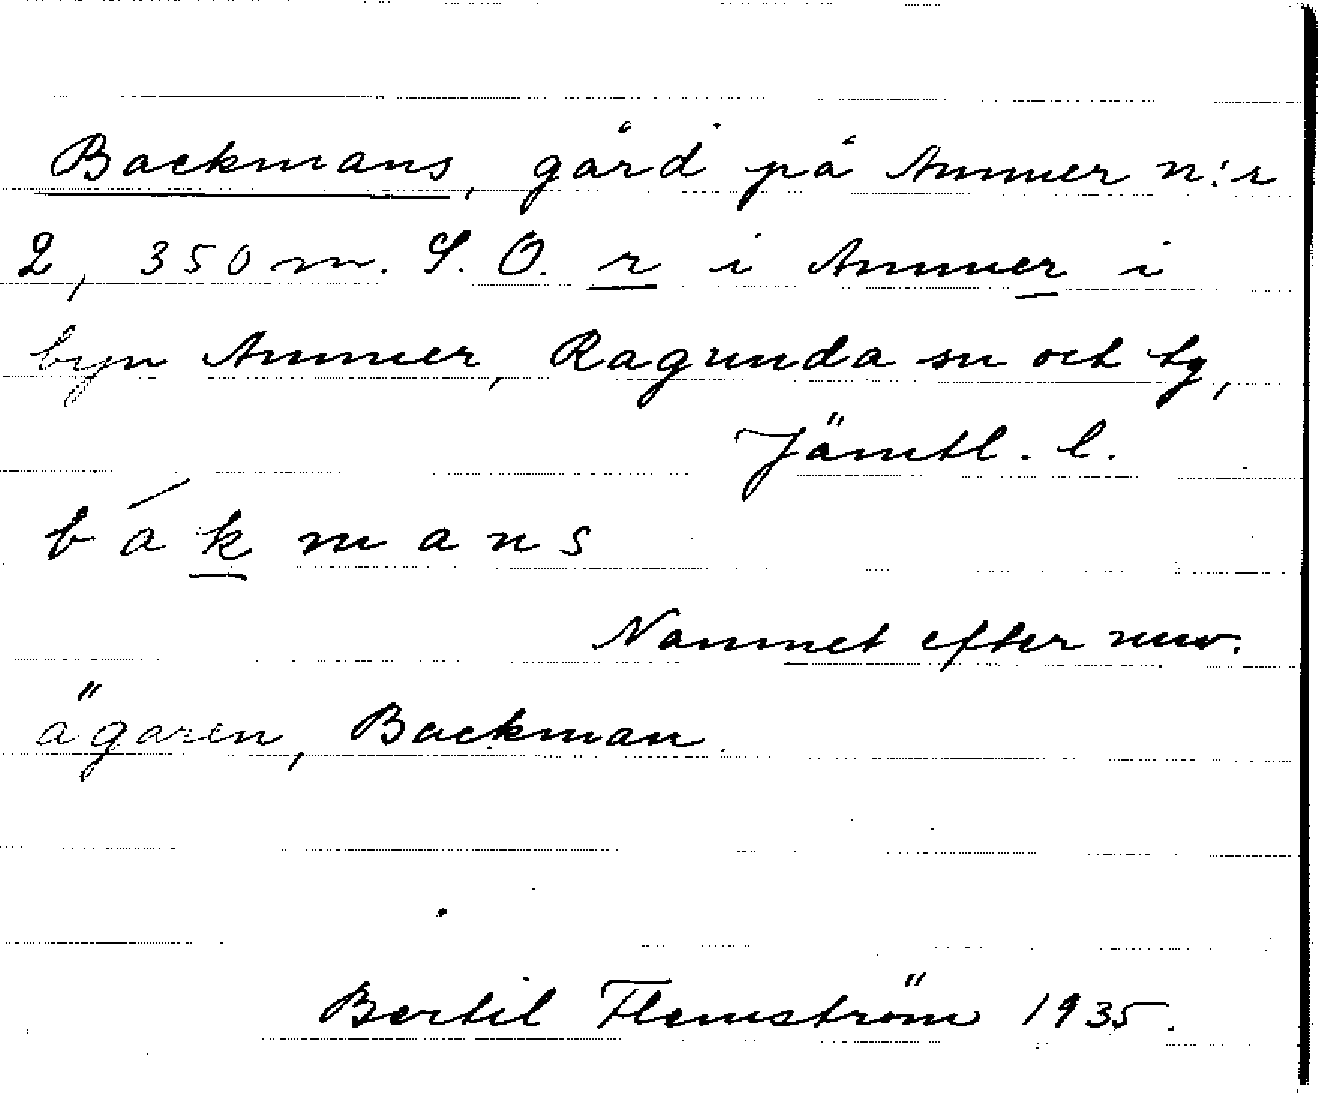 Backmans, gård på Ammer n:r
2, 350 m. S.O. r i Ammer i
byn Ammer, Ragunda sn och tg,
Jämtl. l.
bákmans
Namnet efter nuv.
ägaren, Backman.
Bertil Flemström 1935.